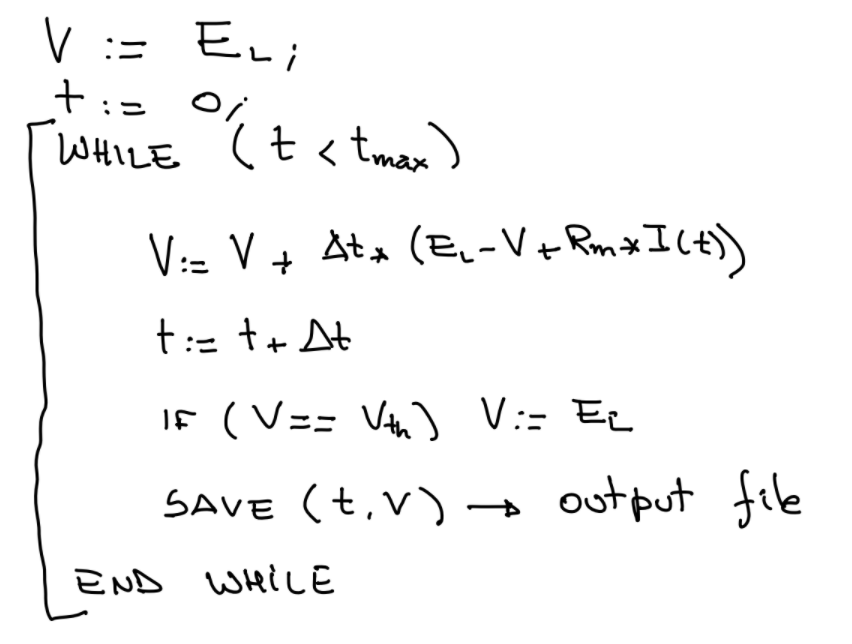 V := E_L;
t := 0;
WHILE (t < t_max)
V := V + Δt * (E_L - V + R_m * I(t))
t := t + Δt
IF (V == V_th) V := E_L
SAVE (t, V) → output file
END WHILE